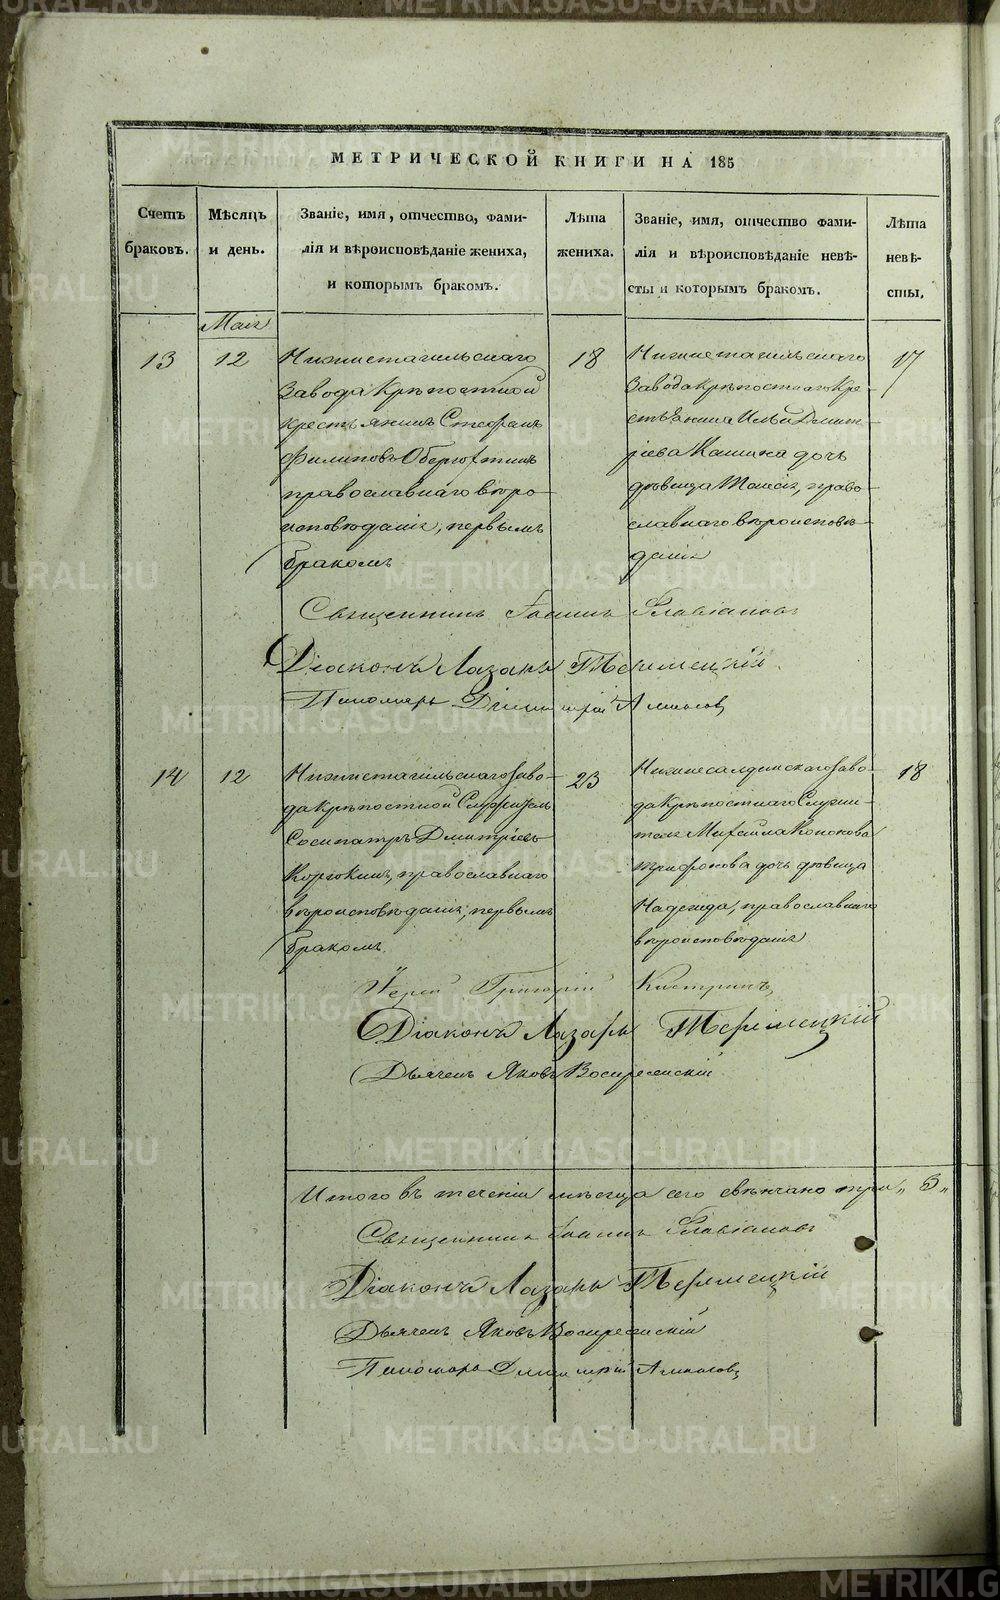 МЕТРИЧЕСКОЙ КНИГИ НА 185
Счетъ браковъ.
Мѣсяцъ и день.
Званіе, имя, отчество, фами-
лія и вѣроисповѣданіе жениха,
и которымъ бракомъ.
Лѣта жениха.
Званіе, имя, отчество фами-
лія и вѣроисповѣданіе невѣ-
сты и которымъ бракомъ.
Лѣта невѣ-
сты.
Маія
13
12
Нижнетагильскаго
завода крѣпостной
крестьянинъ Стефанъ
Филиповъ
православнаго вѣро-
исповѣданія, первымъ
бракомъ
18
Нижнетагильскаго
завода крѣпостнаго кре-
стьянина Ильи Дмит-
ріева Кашина дочь
дѣвица Таисія, право-
славнаго вѣроисповѣ-
данія
17
Священникъ Іоаннъ Славніновъ
Діаконъ Лазарь
Пономарь Димитрій
14
12
Нижнетагильскаго заво-
да крѣпостной Служитель
Сосипатръ Дмитріевъ
православнаго
вѣроисповѣданія, первымъ
бракомъ.
23
Нижнесалдинскаго заво-
да крѣпостнаго Служи-
теля Михаила Кононова
Трифонова дочь дѣвица
Надежда, православнаго
вѣроисповѣданія
18
Іерей Григорій
Діаконъ Лазарь
Дьячекъ Яковъ Воскресенскій
Итого въ теченіи мѣсяца сего свѣнчано три „ 3 „
Священникъ Іоаннъ
Діаконъ Лазарь
Дьячекъ Яковъ Воскресенскій
Пономарь Димитрій
METRIKI.GASO-URAL.RU